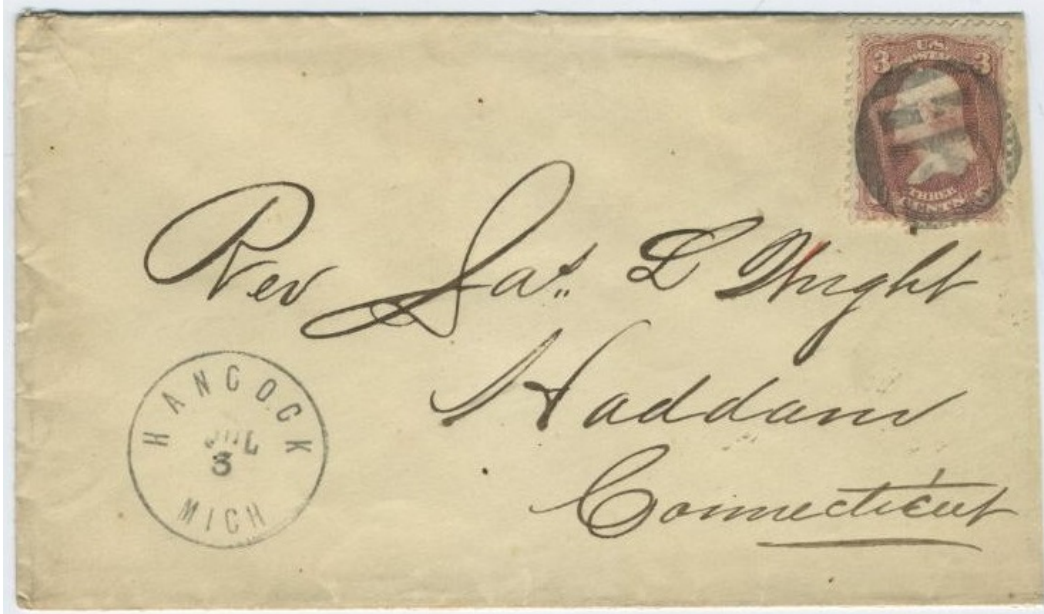 3 U.S. 3
POSTAGE
THREE
CENTS
Rev Jas. L Wright
Haddam
Connecticut
HANCOCK
JUL
3
MICH